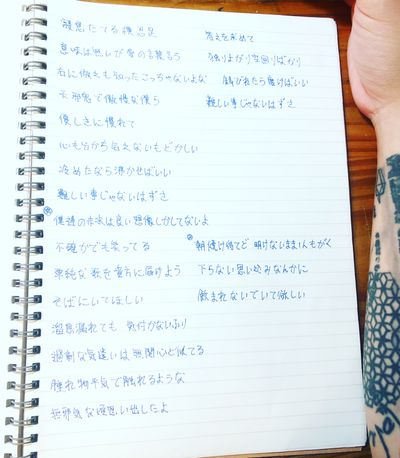 寝息たてる横 忍足
意味は無いが愛の言葉言う
君に傷も知ったこっちゃないよな
天邪鬼で傲慢な僕ら
優しさに慣れて
心も分から合えないもどかしい
冷めたなら沸かせばいい
難しい事じゃないはずさ
僕達の未来は良い想像しかしてないよ
不確かでも笑ってる
単純な歌を貴方に届けよう
そばにいてほしい
溜息漏れても 気付かないふり
過剰な気遣いは無関心と似てる
腫れ物平気で触れるような
無邪気な 思い出したよ
答えを求めて
独りよがり空回りばかり
錆びれたら磨けばいい
難しい事じゃないはずさ
朝焼け待てど 明けないままもがく
下らない思い込みなんかに
飲まれないでいて欲しい